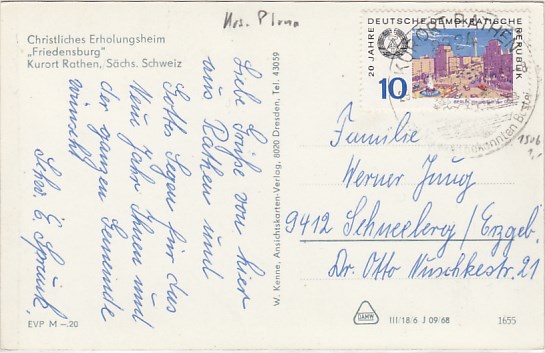 Hos. Plona
Christliches Erholungsheim
„Friedensburg"
Kurort Rathen, Sächs. Schweiz
Liebe Grüße von hier
aus Rathen und
Gottes Segen für das
Neue Jahr Ihnen und
der ganzen Gemeinde
wünscht
Schw. E.
EVP M –.20
W. Kenne, Ansichtskarten-Verlag, 8020 Dresden, Tel. 43059
DEUTSCHE DEMOKRATISCHE
REPUBLIK
20 JAHRE
10
KURORT RATHEN
Familie
Werner Jung
9412 Schneeberg/Erzgeb.
Dr. Otto Nuschkestr. 21
DAMW
III/18/6 J 09/68
1655